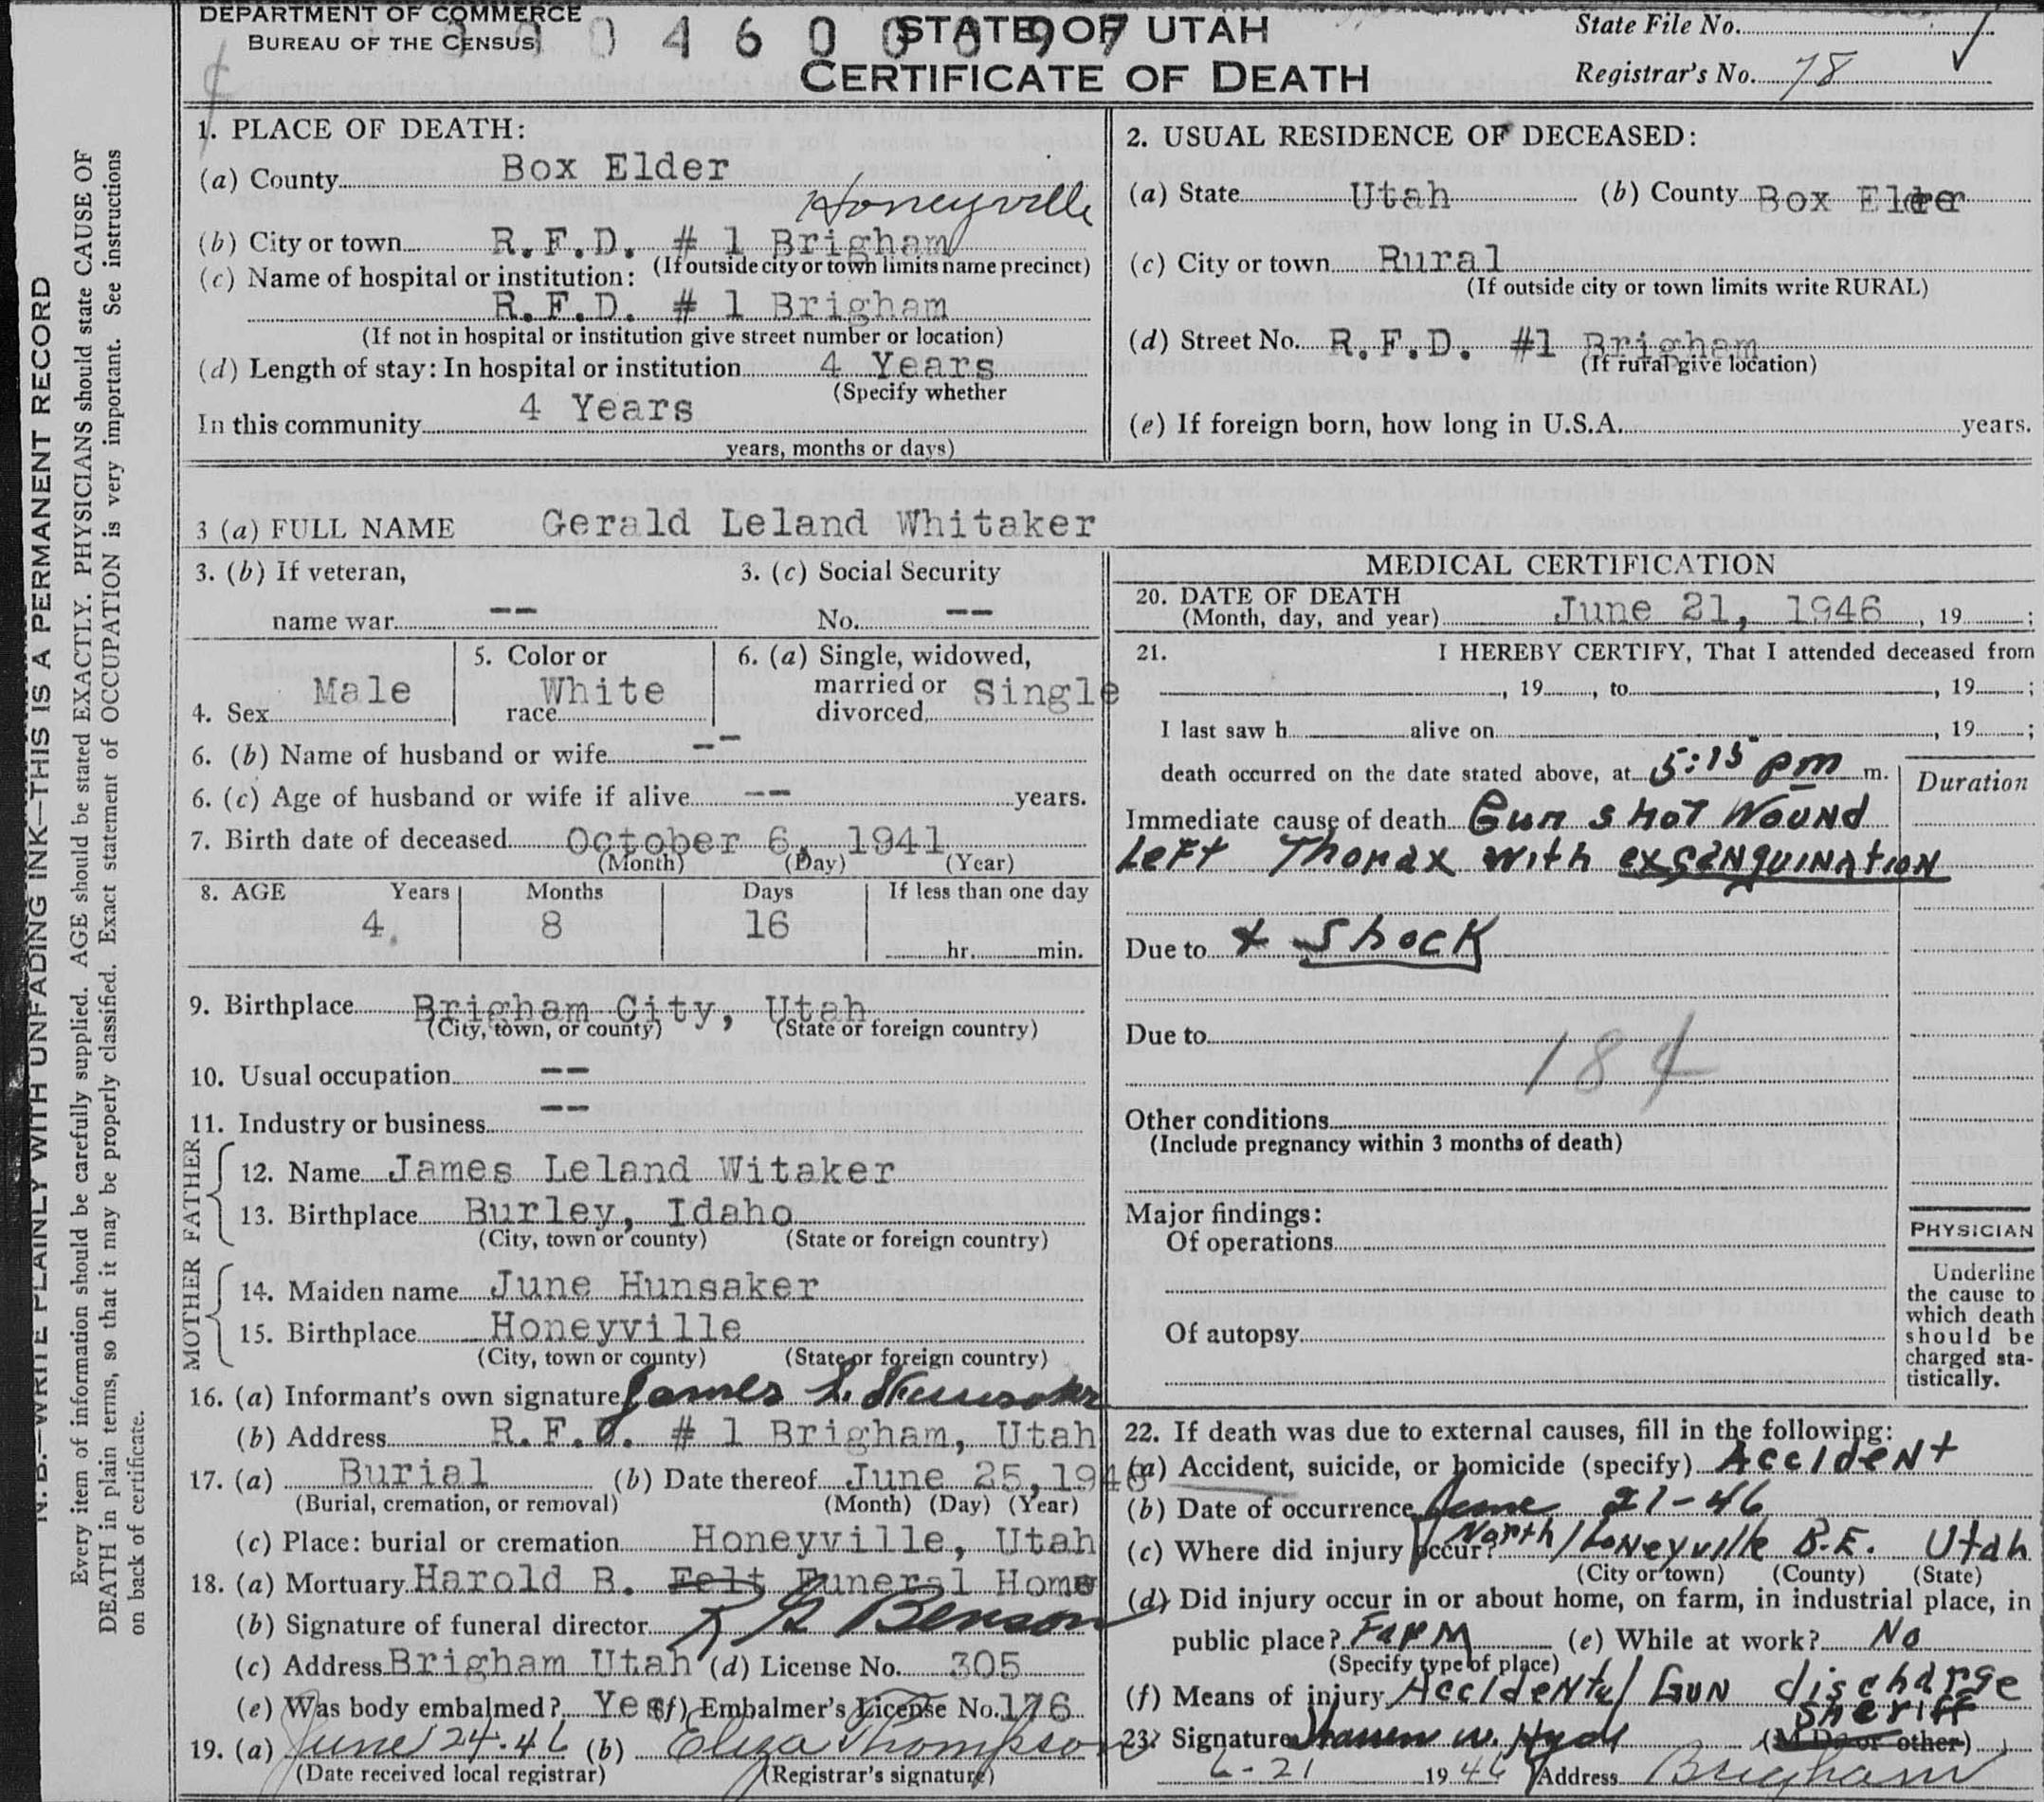 DEPARTMENT OF COMMERCE
BUREAU OF THE CENSUS
4 6 0 0 0 9 7
STATE OF UTAH
CERTIFICATE OF DEATH
State File No.
Registrar's No. 78
N. B.—WRITE PLAINLY WITH UNFADING INK—THIS IS A PERMANENT RECORD
Every item of information should be carefully supplied. AGE should be stated EXACTLY. PHYSICIANS should state CAUSE OF
DEATH in plain terms, so that it may be properly classified. Exact statement of OCCUPATION is very important. See instructions
on back of certificate.
1. PLACE OF DEATH:
(a) County Box Elder
Honeyville
(b) City or town R.F.D. # 1 Brigham
(If outside city or town limits name precinct)
(c) Name of hospital or institution:
R.F.D. # 1 Brigham
(If not in hospital or institution give street number or location)
(d) Length of stay: In hospital or institution 4 Years
(Specify whether
In this community 4 Years
years, months or days)
2. USUAL RESIDENCE OF DECEASED:
(a) State Utah (b) County Box Elder
(c) City or town Rural
(If outside city or town limits write RURAL)
(d) Street No. R.F.D. #1 Brigham
(If rural give location)
(e) If foreign born, how long in U.S.A. years.
3 (a) FULL NAME Gerald Leland Whitaker
3. (b) If veteran,
name war --
3. (c) Social Security
No. --
4. Sex Male
5. Color or
race White
6. (a) Single, widowed,
married or
divorced, Single
6. (b) Name of husband or wife --
6. (c) Age of husband or wife if alive -- years.
7. Birth date of deceased October 6, 1941
(Month) (Day) (Year)
8. AGE Years Months Days If less than one day
4 8 16
hr. min.
9. Birthplace Brigham City, Utah
(City, town, or county) (State or foreign country)
10. Usual occupation --
11. Industry or business --
FATHER
12. Name James Leland Witaker
13. Birthplace Burley, Idaho
(City, town or county) (State or foreign country)
MOTHER
14. Maiden name June Hunsaker
15. Birthplace Honeyville
(City, town or county) (State or foreign country)
16. (a) Informant's own signature James L. Hunsaker
(b) Address R.F.D. # 1 Brigham, Utah
17. (a) Burial (b) Date thereof June 25, 1946
(Burial, cremation, or removal) (Month) (Day) (Year)
(c) Place: burial or cremation Honeyville, Utah
18. (a) Mortuary Harold B. Felt Funeral Home
(b) Signature of funeral director Benson
(c) Address Brigham Utah (d) License No. 305
(e) Was body embalmed? Yes (f) Embalmer's License No. 176
19. (a) June 24-46 (b) Eliza Thompson
(Date received local registrar) (Registrar's signature)
MEDICAL CERTIFICATION
20. DATE OF DEATH
(Month, day, and year) June 21, 1946, 19 ;
21. I HEREBY CERTIFY, That I attended deceased from
, 19 , to , 19 ;
I last saw h alive on , 19 ;
death occurred on the date stated above, at 5:15 pm m.
Duration
Immediate cause of death Gun shot Wound
Left Thorax with exsanguination
Due to + Shock
Due to
184
Other conditions
(Include pregnancy within 3 months of death)
Major findings:
Of operations
Of autopsy
PHYSICIAN
Underline
the cause to
which death
should be
charged sta-
tistically.
22. If death was due to external causes, fill in the following:
(a) Accident, suicide, or homicide (specify) Accident
(b) Date of occurrence June 21-46
(c) Where did injury occur? North Honeyville B.E. Utah
(City or town) (County) (State)
(d) Did injury occur in or about home, on farm, in industrial place, in
public place? Farm (e) While at work? No
(Specify type of place)
(f) Means of injury Accidental Gun discharge
Sheriff
23. Signature Warren W. Hyde (M.D. or other)
6-21 1946 Address Brigham